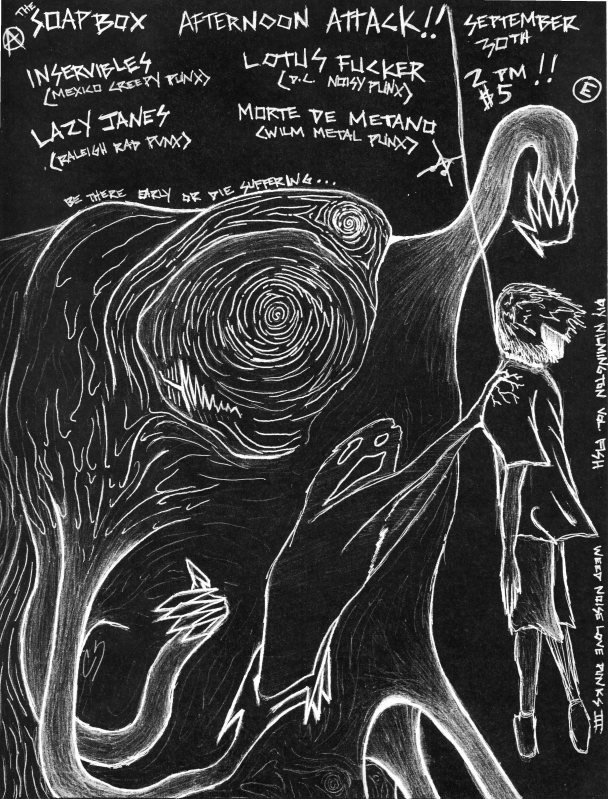 THE
SOAPBOX AFTERNOON ATTACK!!
SEPTEMBER
30TH
2 PM !!
$5
A
E
INSERVIBLES
(MEXICO CREEPY PUNX)
LOTUS FUCKER
(D.C. NOISY PUNX)
LAZY JANES
(RALEIGH RAD PUNX)
MORTE DE METANO
(WILM METAL PUNX)
BE THERE EARLY OR DIE SUFFERING...
DIY WILMINGTON
WEED NOISE LOVE PUNKS III